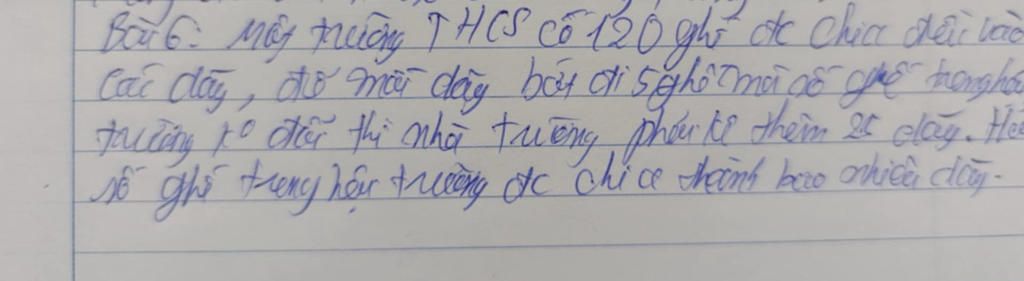 Bài 6: Một trường THCS có 120 ghế đc chia đều vào
các dãy, để mỗi dãy bớt đi 5 ghế mà số ghế trong hội
trường ko đổi thì nhà trường phải kê thêm dãy. Hỏi
số ghế trong hội trường đc chia thành bao nhiêu dãy.